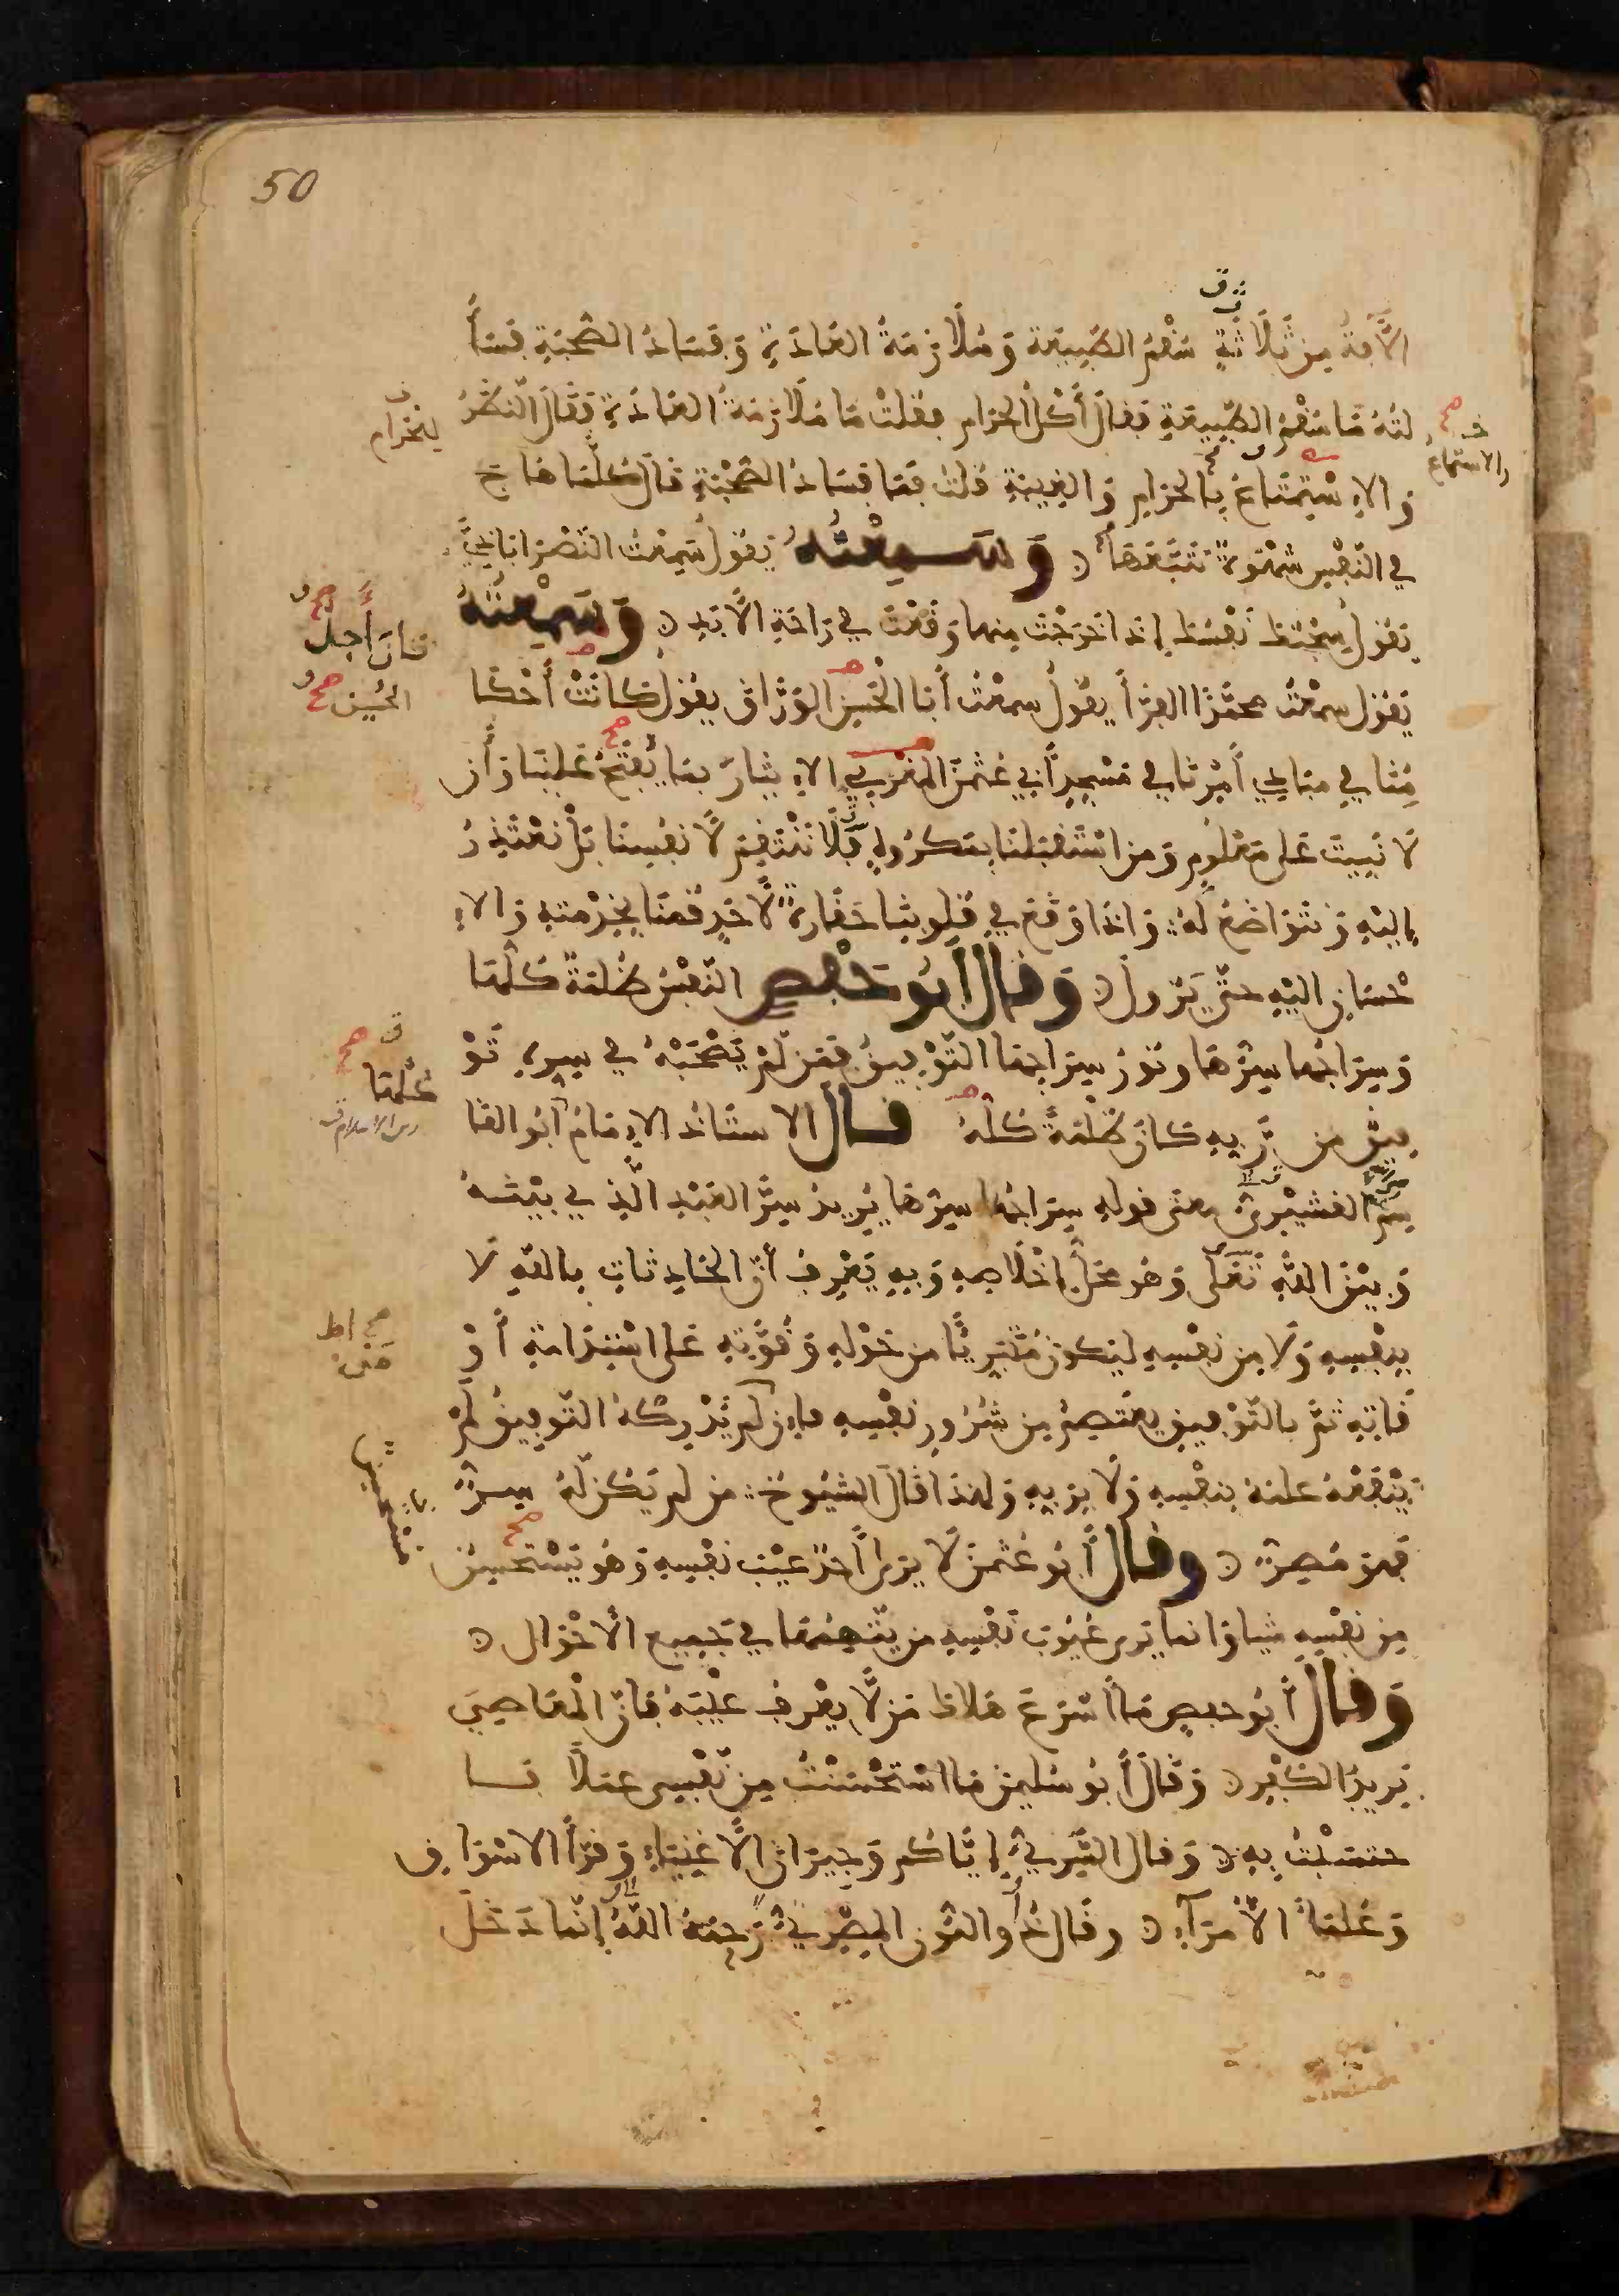 50
الآفة من ثلاثة سقم الطبيعة وملازمة العادة وفساد الصحبة فسأ
لته ما سقم الطبيعة فقال أكل الحرام فقلت ما ملازمة العادة فقال النظر
للحرام
والاستماع
والاستمتاع بالحرام والغيبة قلت فما فساد الصحبة قال كلما هاج
في النفس شهوة تتبعها وسمعته يقول سمعت النصراباذي
يقول سجنك نفسك إذا خرجت منها وقعت في راحة الأبد وسمعته
قال أجل
يقول سمعت محمدا الفرأ يقول سمعت أبا الحسين الوراق يقول كانت أحكا
الحسين
منا في مبادي أمرنا في مسجد أبي عثمن المغربي الإيثار بما يفتح علينا وأن
لا نبيت على معلوم ومن استقبلنا بمكروه فلا ننتقم لانفسنا بل نعتذر
إليه ونتواضع له وإذا وقع في قلوبنا حقارة لأحد قمنا بخدمته والإ
حسان إليه حتى يزول وقال أبو حفص النفس ظلمة كلما
وسراجها سرها ونور سراجها التوفيق فمن لم يصحبه في سره تو
كلها
فيق من ربه كان ظلمة كله قال الاستاذ الإمام أبو القا
سم القشيري معنى قوله سراجها سرها يريد سر العبد الذي بينه
وبين الله تعلى وهو محل إخلاصه وبه يعرف أن الحادثات بالله لا
بنفسه ولا من نفسه ليكون متبريا من حوله وقوته على استدامة أو
قاته ثم بالتوفيق يعتصم من شرور نفسه فإن لم يدركه التوفيق لم
ينفعه علمه بنفسه ولا بربه ولهذا قال الشيوخ من لم يكن له سر
فهو مصر وقال أبو عثمن لا يرى أحد عيب نفسه وهو يستحسن
من نفسه شيا وإنما يرى عيوب نفسه من يتهمها في جميع الأحوال
وقال أبو حفص ما أسرع هلاك من لا يعرف عيبه فان المعاصي
بريد الكفر وقال أبو سليمن ما استحسنت من نفسي عملا فا
حتسبت به وقال السري إياكم وجيران الأغنياء وقرأ الاسواق
وعلما الأمرآء وقال ذو النون المصري رحمه الله إنما دخل